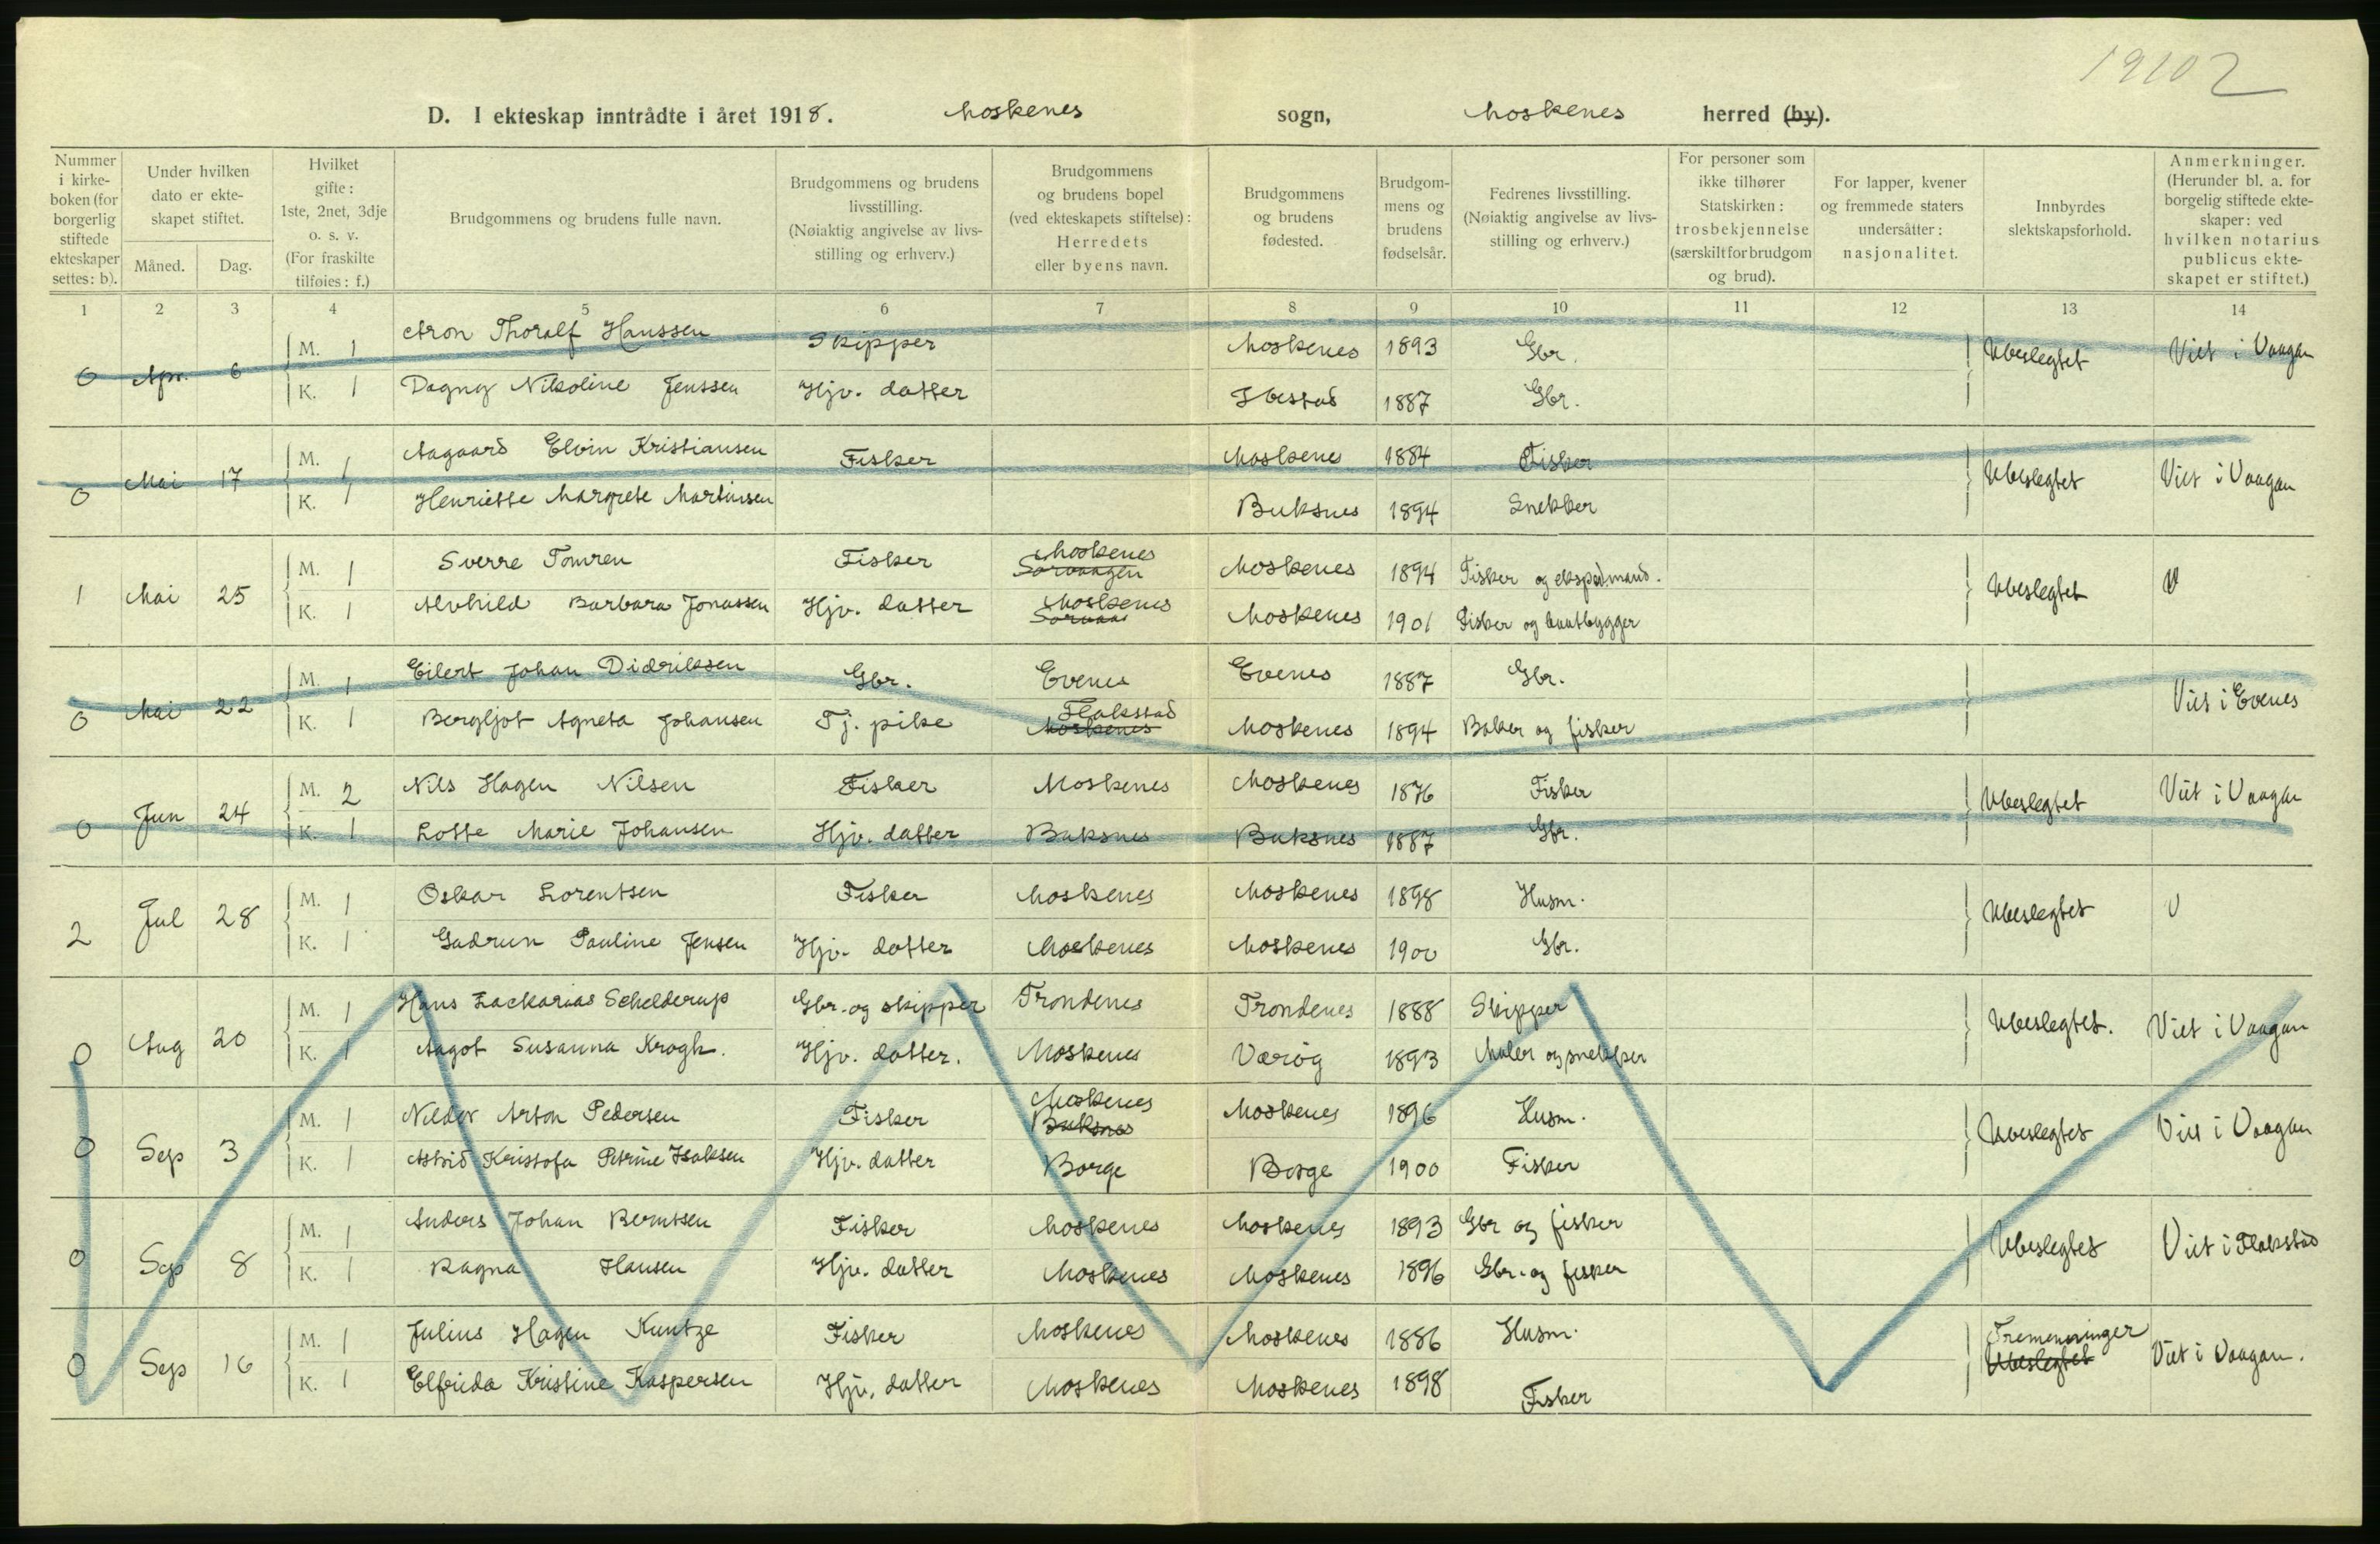 19102
D. I ekteskap inntrådte i året 1918. Moskenes sogn, Moskenes herred (by).
Nummer i kirkeboken (for borgerlig stiftede ekteskaper settes: b).
Under hvilken dato er ekteskapet stiftet.
Måned.
Dag.
Hvilket gifte: 1ste, 2net, 3dje o. s. v. (For fraskilte tilføies: f.)
Brudgommens og brudens fulle navn.
Brudgommens og brudens livsstilling. (Nøiaktig angivelse av livsstilling og erhverv.)
Brudgommens og brudens bopel (ved ekteskapets stiftelse): Herredets eller byens navn.
Brudgommens og brudens fødested.
Brudgommens og brudens fødselsår.
Fedrenes livsstilling. (Nøiaktig angivelse av livsstilling og erhverv.)
For personer som ikke tilhører Statskirken: trosbekjennelse (særskilt for brudgom og brud).
For lapper, kvener og fremmede staters undersåtter: nasjonalitet.
Innbyrdes slektskapsforhold.
Anmerkninger. (Herunder bl. a. for borgelig stiftede ekteskaper: ved hvilken notarius publicus ekteskapet er stiftet.)
1 2 3 4 5 6 7 8 9 10 11 12 13 14
0 Apr. 6 M. 1 Aron Thoralf Hanssen Skipper Moskenes 1893 Gbr. Ubeslegtet Viet i Vaagan
K. 1 Dagny Nikoline Jenssen Hjv. datter Ibestad 1887 Gbr.
0 Mai 17 M. 1 Aagaard Elvin Kristiansen Fisker Moskenes 1884 Fisker Ubeslegtet Viet i Vaagan
K. 1 Henriette Margrete Martinsen Buksnes 1894 Snekker
1 Mai 25 M. 1 Sverre Tomren Fisker Moskenes Sørvaagen Moskenes 1894 Fisker og ekspd.mand. Ubeslegtet V
K. 1 Alvhild Barbara Jonassen Hjv. datter Moskenes Sørvaag Moskenes 1901 Fisker og baatbygger
0 Mai 22 M. 1 Eilert Johan Didriksen Gbr. Evenes Evenes 1887 Gbr. Viet i Evenes
K. 1 Bergljot Agneta Johansen Tj. pike Flakstad Moskenes Moskenes 1894 Baker og fisker
0 Jun 24 M. 2 Nils Hagen Nilsen Fisker Moskenes Moskenes 1876 Fisker Ubeslegtet Viet i Vaagan
K. 1 Lotte Marie Johansen Hjv. datter Buksnes Buksnes 1887 Gbr.
2 Jul 28 M. 1 Oskar Lorentsen Fisker Moskenes Moskenes 1898 Husm. Ubeslegtet V
K. 1 Gudrun Pauline Jensen Hjv. datter Moskenes Moskenes 1900 Gbr.
0 Aug 20 M. 1 Hans Zackarias Schelderup Gbr. og skipper Trondenes Trondenes 1888 Skipper Ubeslegtet. Viet i Vaagan
K. 1 Aagot Susanna Krogh. Hjv. datter. Moskenes Værøy 1893 Maler og snekker
0 Sep 3 M. 1 Nilder Arton Pedersen Fisker Moskenes Buksnes Moskenes 1896 Husm. Ubeslegtet Viet i Vaagan
K. 1 Astrid Kristofa Petrine Isaksen Hjv. datter Borge Borge 1900 Fisker
0 Sep 8 M. 1 Anders Johan Berntsen Fisker Moskenes Moskenes 1893 Gbr og fisker Ubeslegtet Viet i Flakstad
K. 1 Ragna Hansen Hjv. datter Moskenes Moskenes 1896 Gbr. og fisker
0 Sep 16 M. 1 Julius Hagen Kuntze Fisker Moskenes Moskenes 1886 Husm. Tremenninger Ubeslegtet Viet i Vaagan.
K. 1 Elfrida Kristine Kaspersen Hjv. datter Moskenes Moskenes 1898 Fisker